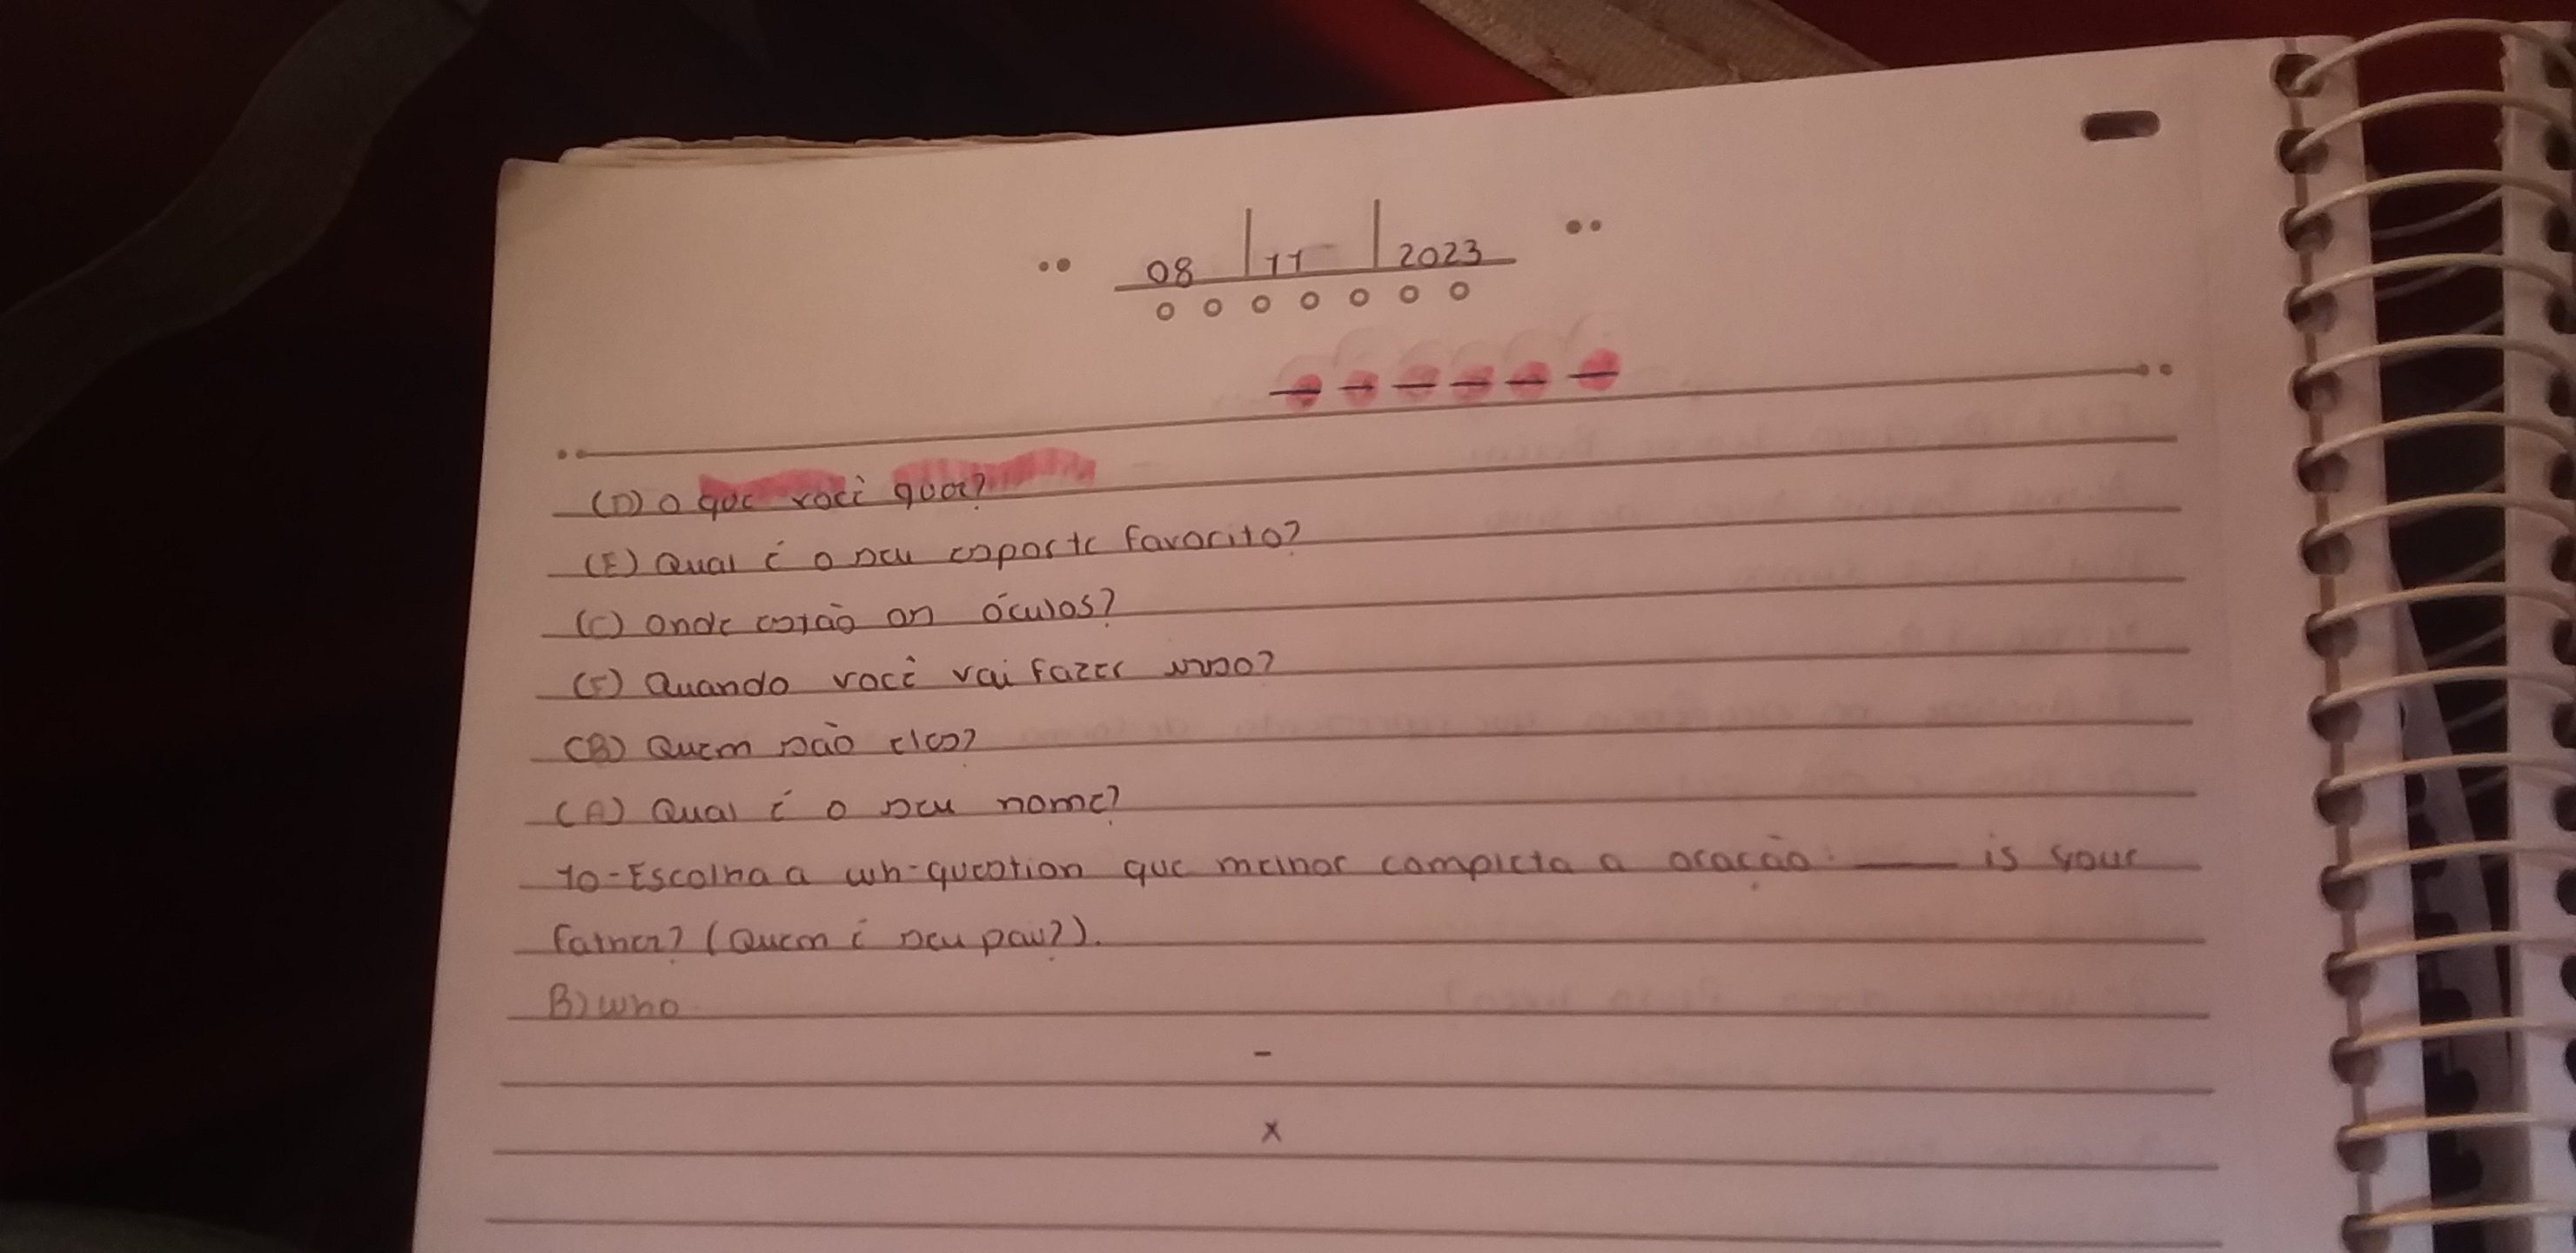 08 / 11 / 2023
(D) o que você quer?
(E) Qual é o seu esporte favorito?
(C) onde estão os óculos?
(F) Quando você vai fazer isso?
(B) Quem são eles?
(A) Qual é o seu nome?
10-Escolha a wh-question que melhor completa a oração: ____ is your
father? (Quem é seu pai?).
B) who.
- x